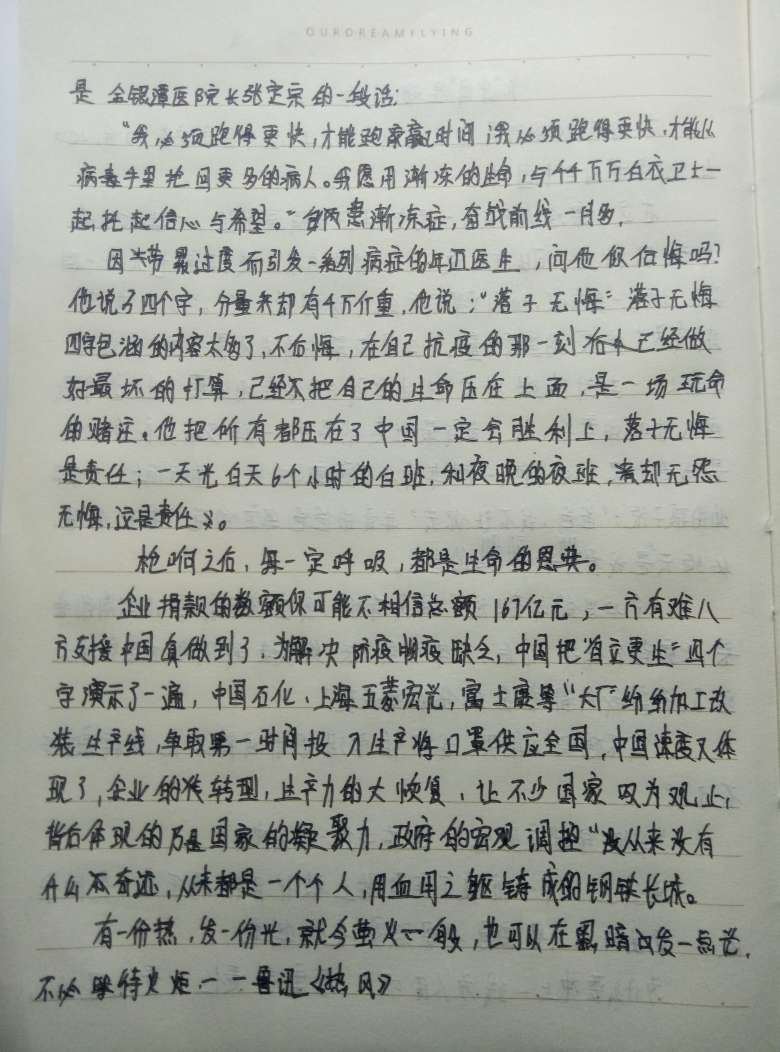 OURDREAMFLYING
是金银潭医院长张定宗的一段话:
"我必须跑得更快,才能跑赢时间;我必须跑得更快,才能从
病毒手里抢回更多的病人。我愿用渐冻的生命,与千千万万白衣卫士一
起托起信心与希望。"身患渐冻症,奋战前线一月多,
因劳累过度而引发一系列病症的年迈医生,问他你后悔吗?
他说了四个字,分量来却有千万斤重,他说:"落子无悔"落子无悔
四字包涵的内容太多了,不后悔,在自己抗疫的那一刻 已经做
好最坏的打算,已经把自己的生命压在上面,是一场玩命
的赌注。他把所有都压在了中国一定会胜利上,落子无悔
是责任;一天光白天6个小时的白班,和夜晚的夜班,却无怨
无悔,这是责任义。
枪响之后,每一定呼吸,都是生命的恩典。
企业捐款的数额你可能不相信总额167亿元,一方有难八
方支援中国真做到了.为解决防疫物资缺乏,中国把"自立更生"四个
字演示了一遍,中国石化、上海五菱宏光,富士康等"大厂"纷纷加工改
装生产线,争取第一时间投入生产将口罩供应全国,中国速度又体
现了,企业的转型,生产力的大恢复,让不少国家叹为观止,
背后体现的乃是国家的凝聚力,政府的宏观调控"从来没有
什么奇迹,从来都是一个个人,用血肉之躯铸成的钢铁长城。
有一份热,发一份光,就令萤火一般,也可以在黑暗里发一点光,
不必等待火炬一一鲁迅《热风》